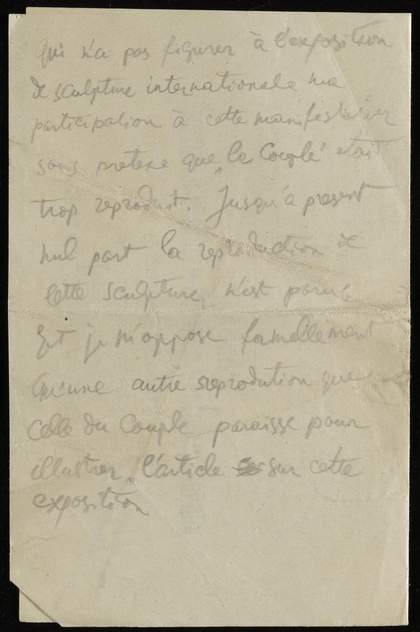 qui n'a pas figurer à l'exposition
de sculpture internationale ma
participation à cette manifestation
sous pretexe que "le Couple" etait
trop reproduit. Jusqu'à present
nul part la reproduction de
cette sculpture, n'est parue
Et je m'oppose formellement
qu'une autre reprodution que
celle du Couple paraisse pour
illustrer l'article sur cette
exposition